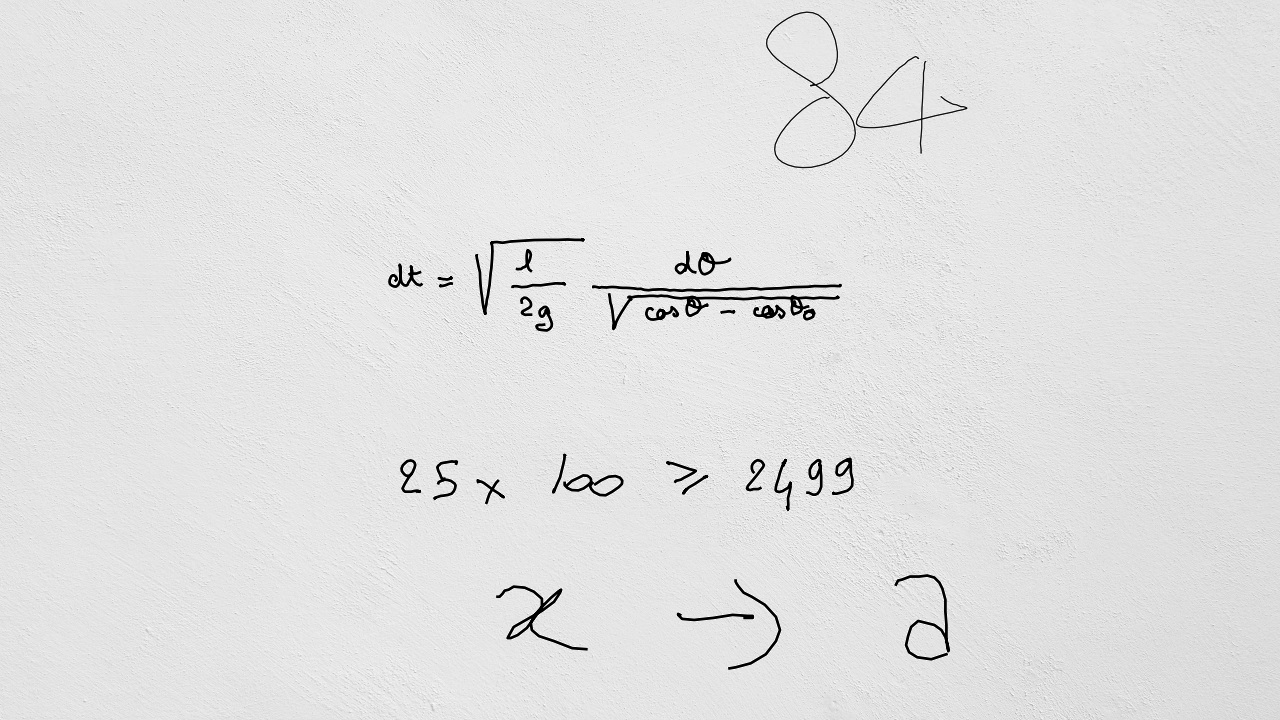 84
dt = √(l/2g) dθ/√(cosθ - cosθ₀)
25 x 100 ⩾ 2499
x → a